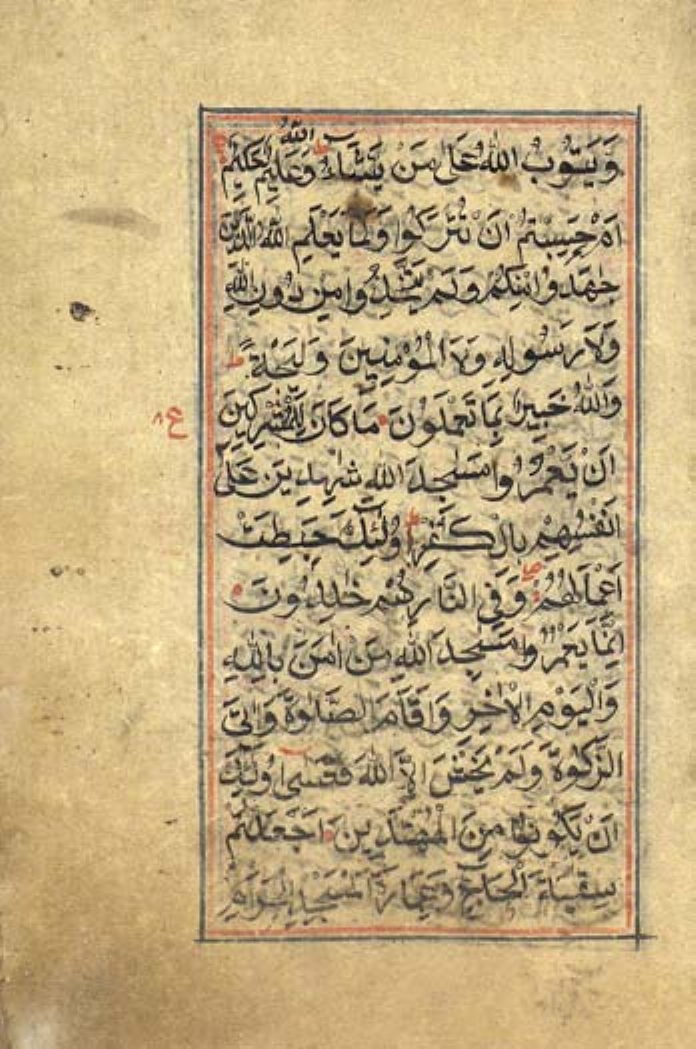 وَيَتُوبُ اللهُ عَلَى مَنْ يَشَاءُ ط وَاللهُ عَلِيمٌ حَكِيمٌ
اَمْ حَسِبْتُمْ اَنْ تُتْرَكُوا وَلَمَّا يَعْلَمِ اللهُ الَّذِينَ
جٰهَدُوا مِنْكُمْ وَلَمْ يَتَّخِذُوا مِنْ دُونِ اللهِ
وَلَا رَسُولِهِ وَلَا الْمُؤْمِنِينَ وَلِيجَةً ط
وَاللهُ خَبِيرٌ بِمَا تَعْمَلُونَ مَا كَانَ لِلْمُشْرِكِينَ
اَنْ يَعْمُرُوا مَسٰجِدَ اللهِ شٰهِدِينَ عَلٰى
اَنْفُسِهِمْ بِالْكُفْرِ ط اُولٰئِكَ حَبِطَتْ
اَعْمَالُهُمْ وَفِي النَّارِ هُمْ خٰلِدُونَ
اِنَّمَا يَعْمُرُ مَسٰجِدَ اللهِ مَنْ اٰمَنَ بِاللهِ
وَالْيَوْمِ الْاٰخِرِ وَاَقَامَ الصَّلٰوةَ وَاٰتَى
الزَّكٰوةَ وَلَمْ يَخْشَ اِلَّا اللهَ فَعَسٰى اُولٰئِكَ
اَنْ يَكُونُوا مِنَ الْمُهْتَدِينَ اَجَعَلْتُمْ
سِقَايَةَ الْحَاجِّ وَعِمَارَةَ الْمَسْجِدِ الْحَرَامِ
ع ٨